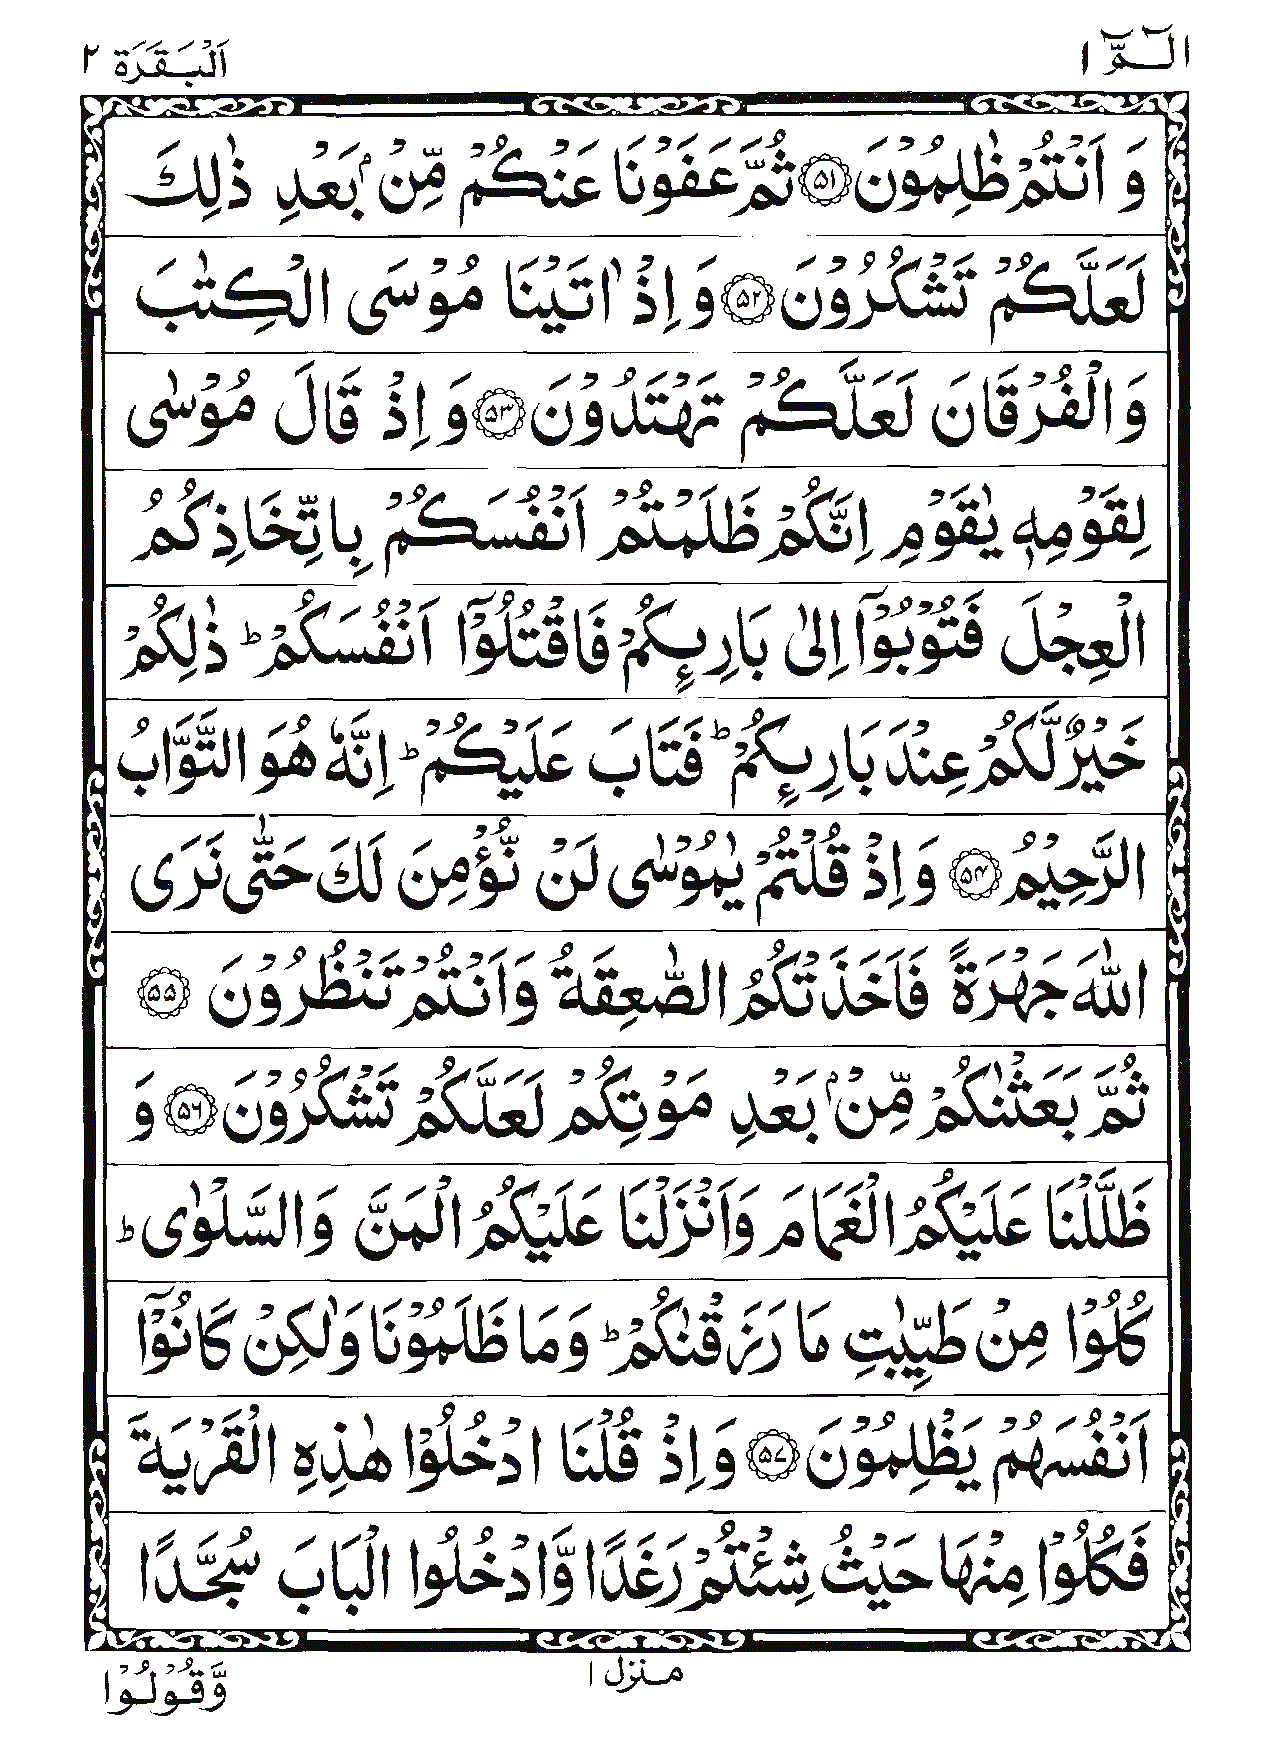 الٓمّٓ ١
اَلْبَقَرَة ٢
وَ اَنْتُمْ ظٰلِمُوْنَ ۝۵۱ ثُمَّ عَفَوْنَا عَنْكُمْ مِّنْۢ بَعْدِ ذٰلِكَ
لَعَلَّكُمْ تَشْكُرُوْنَ ۝۵۲ وَ اِذْ اٰتَيْنَا مُوْسَى الْكِتٰبَ
وَالْفُرْقَانَ لَعَلَّكُمْ تَهْتَدُوْنَ ۝۵۳ وَ اِذْ قَالَ مُوْسٰى
لِقَوْمِهٖ يٰقَوْمِ اِنَّكُمْ ظَلَمْتُمْ اَنْفُسَكُمْ بِاتِّخَاذِكُمُ
الْعِجْلَ فَتُوْبُوْۤا اِلٰى بَارِىِٕكُمْ فَاقْتُلُوْۤا اَنْفُسَكُمْ ؕ ذٰلِكُمْ
خَيْرٌ لَّكُمْ عِنْدَ بَارِىِٕكُمْ ؕ فَتَابَ عَلَيْكُمْ ؕ اِنَّهٗ هُوَ التَّوَّابُ
الرَّحِيْمُ ۝۵۴ وَ اِذْ قُلْتُمْ يٰمُوْسٰى لَنْ نُّؤْمِنَ لَكَ حَتّٰى نَرَى
اللّٰهَ جَهْرَةً فَاَخَذَتْكُمُ الصّٰعِقَةُ وَاَنْتُمْ تَنْظُرُوْنَ ۝۵۵
ثُمَّ بَعَثْنٰكُمْ مِّنْۢ بَعْدِ مَوْتِكُمْ لَعَلَّكُمْ تَشْكُرُوْنَ ۝۵۶ وَ
ظَلَّلْنَا عَلَيْكُمُ الْغَمَامَ وَاَنْزَلْنَا عَلَيْكُمُ الْمَنَّ وَالسَّلْوٰى ؕ
كُلُوْا مِنْ طَيِّبٰتِ مَا رَزَقْنٰكُمْ ؕ وَمَا ظَلَمُوْنَا وَلٰكِنْ كَانُوْۤا
اَنْفُسَهُمْ يَظْلِمُوْنَ ۝۵۷ وَاِذْ قُلْنَا ادْخُلُوْا هٰذِهِ الْقَرْيَةَ
فَكُلُوْا مِنْهَا حَيْثُ شِئْتُمْ رَغَدًا وَّادْخُلُوا الْبَابَ سُجَّدًا
منزل ١
وَّقُوْلُوْا